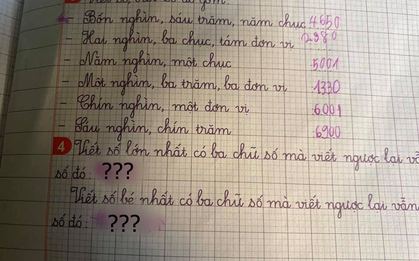 - Bốn nghìn, sáu trăm, năm chục 4650
- Hai nghìn, ba chục, tám đơn vị 2380
- Năm nghìn, một chục 5001
- Một nghìn, ba trăm, ba đơn vị 1330
- Chín nghìn, một đơn vị 6001
- Sáu nghìn, chín trăm 6900
4 Viết số lớn nhất có ba chữ số mà viết ngược lại
số đó: ???
Viết số bé nhất có ba chữ số mà viết ngược lại vẫn
số đó: ???